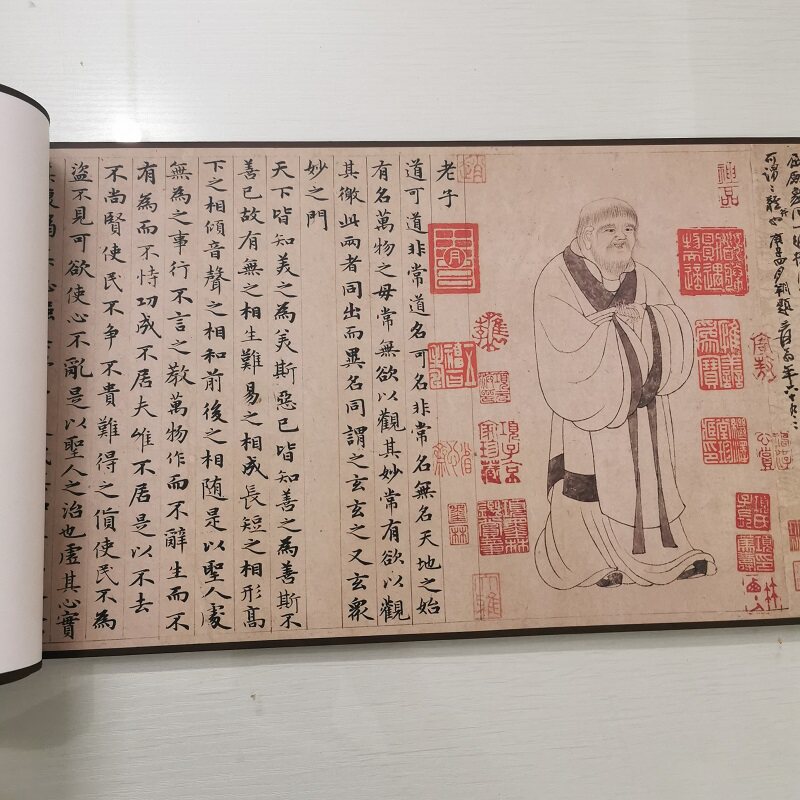 神品
項子京
家珍藏
老子
道可道非常道名可名非常名無名天地之始
有名萬物之母常無欲以觀其妙常有欲以觀
其徼此兩者同出而異名同謂之玄玄之又玄眾
妙之門
天下皆知美之為美斯惡已皆知善之為善斯不
善已故有無之相生難易之相成長短之相形高
下之相傾音聲之相和前後之相随是以聖人處
無為之事行不言之教萬物作而不辭生而不
有為而不恃功成不居夫唯不居是以不去
不尚賢使民不争不貴難得之貨使民不為
盜不見可欲使心不亂是以聖人之治也虛其心實